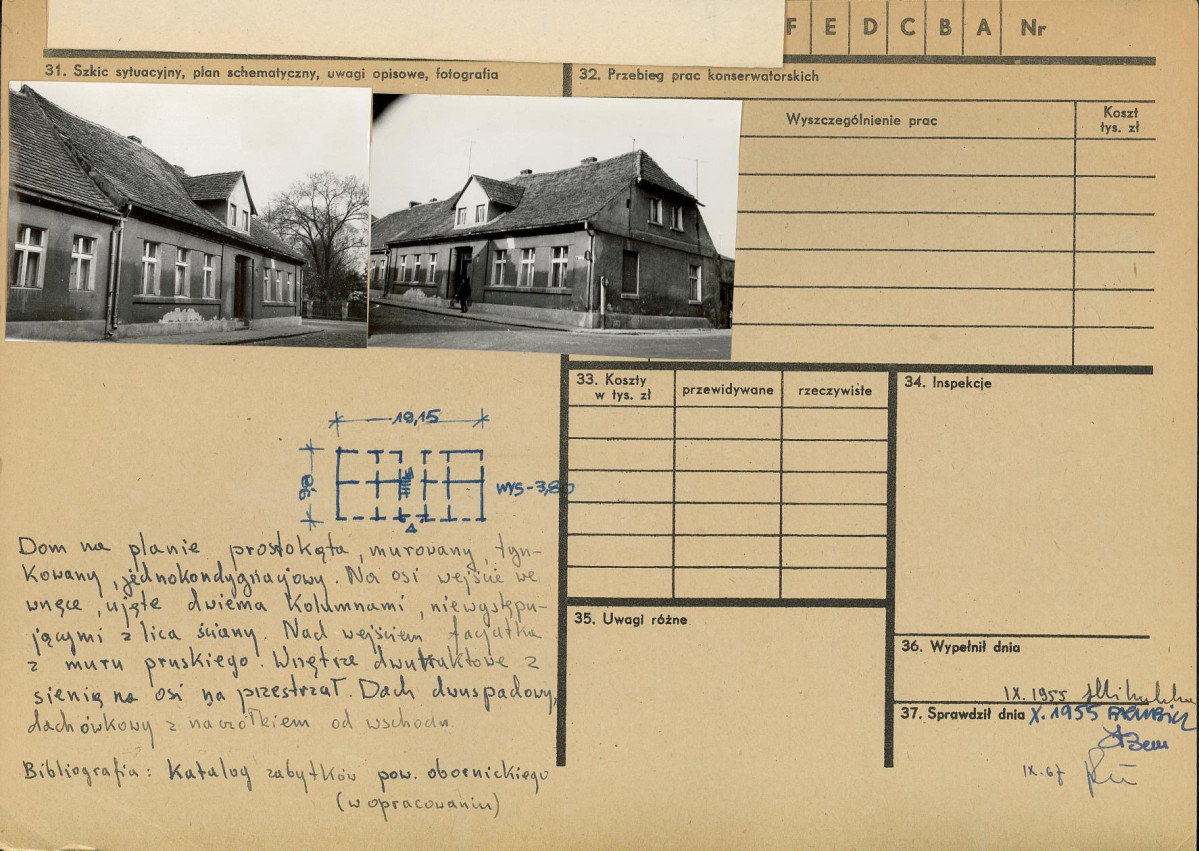 F E D C B A Nr
31. Szkic sytuacyjny, plan schematyczny, uwagi opisowe, fotografia
32. Przebieg prac konserwatorskich
Wyszczególnienie prac
Koszt
tys. zł
33. Koszty
w tys. zł
przewidywane
rzeczywiste
34. Inspekcje
19,15
9,8
wys-3,80
Dom na planie prostokąta, murowany, tyn-
kowany, jednokondygnacjowy. Na osi wejście we
wnęce, ujęte dwiema kolumnami, niewystępu-
jącymi z lica ściany. Nad wejściem facjatka
z muru pruskiego. Wnętrze dwutraktowe z
sienią na osi na przestrzał. Dach dwuspadowy,
dachówkowy z naczółkiem od wschodu.
Bibliografia: Katalog zabytków pow. obornickiego
(w opracowaniu)
35. Uwagi różne
36. Wypełnił dnia
IX.1955
37. Sprawdził dnia X.1955
IX.67